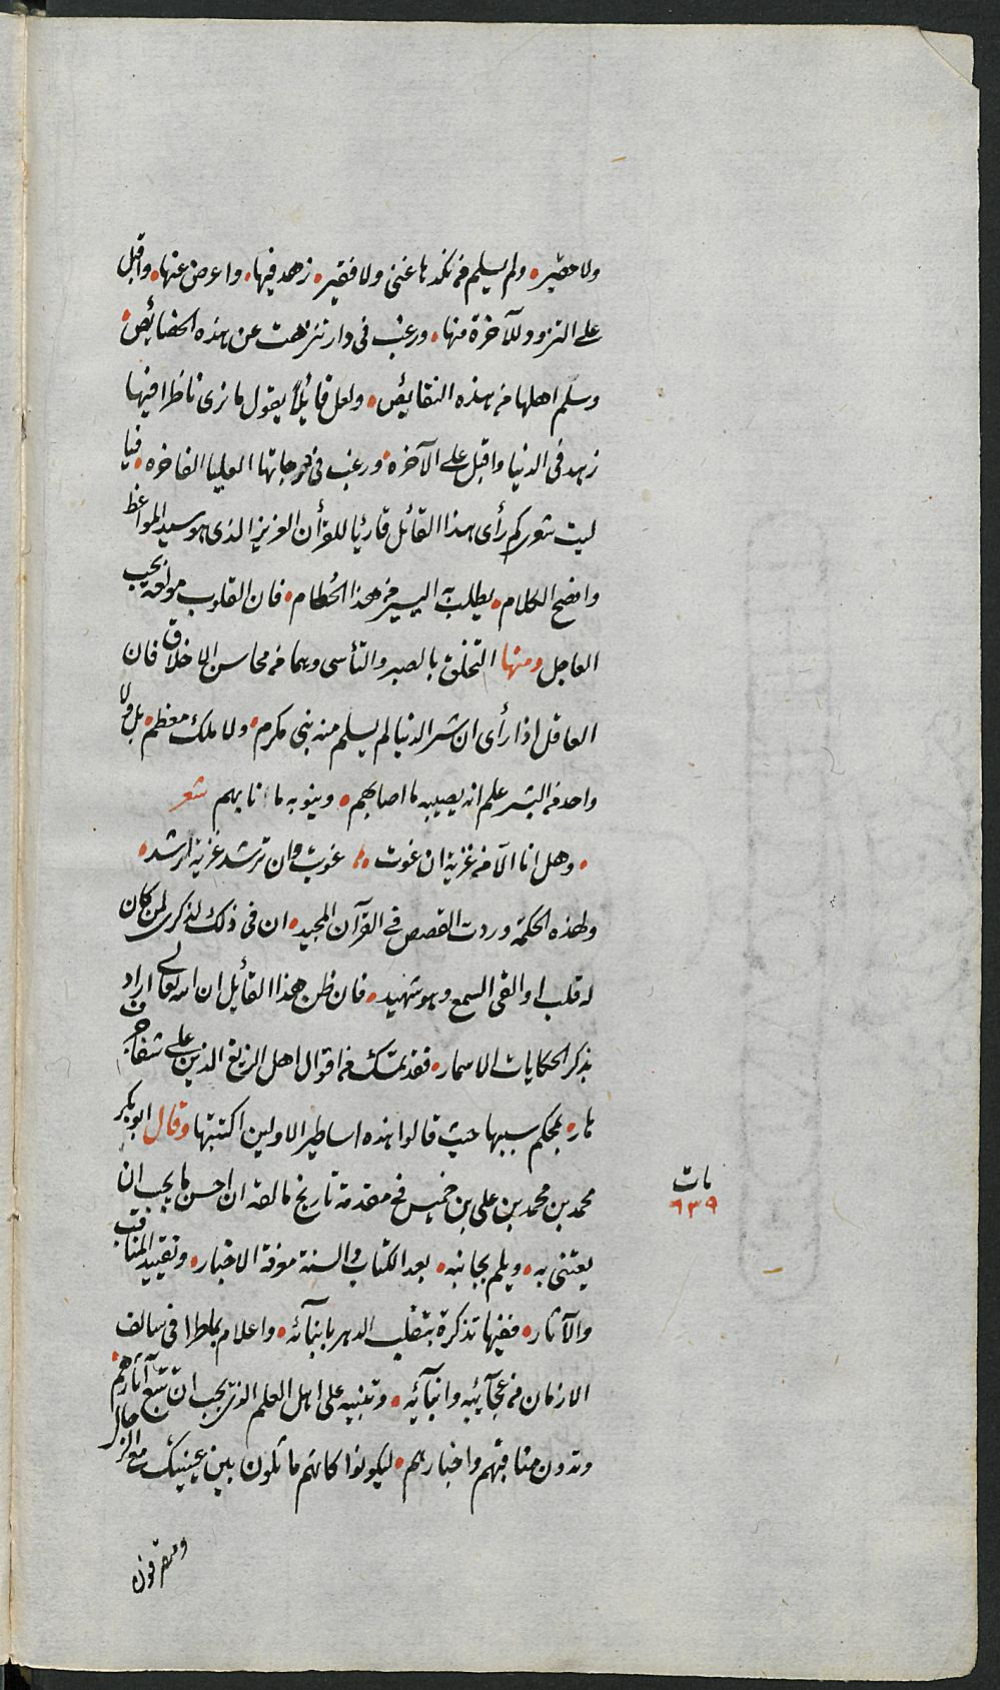 ولا حقير • ولم يسلم من نكدها غنى ولا فقير • زهد فيها • واعرض عنها • واقبل
على التزود للآخرة منها • ورغب فى دار تنزهت عن هذه الخصائص •
وسلم اهلها من هذه النقائص • ولعل قائلاً يقول ما نرى ناظرا فيها
زهد فى الدنيا واقبل على الآخرة • ورغب فى درجاتها العليا الفاخره • فيا
ليت شعرى كم رأى هذا القائل قارئا للقرأن العزيز الذى هو سيد المواعظ
وافصح الكلام • يطلب به اليسير من هذا الحُطام • فان القلوب مولعة بحب
العاجل ومنها التخلق بالصبر والتأسى وهما من محاسن الاخلاق فان
العاقل اذا رأى ان شر الدنيا لم يسلم منه نبى مكرم • ولا ملك معظم • بل ولا
واحد من البشر علم انه يصيبه ما اصابهم • وينوبه ما نابهم شعر
• وهل انا الا من غزية ان غوت •• غويت وان ترشد غزية ارشد •
ولهذه الحكمة وردت القصص فى القرآن المجيد • ان فى ذلك لذكرى لمن كان
له قلب او القى السمع وهو شهيد • فان ظن هذا القائل ان الله تعالى اراد
بذكر الحكايات الاسمار • فقد تمسك من اقوال اهل الزيغ الذين على شفا جرف
هار • بمحكم سببها حيث قالوا هذه اساطير الاولين اكتتبها وقال ابو بكر
محمد بن محمد بن على بن خميس فى مقدمة تاريخ مالقة ان احسن ما يجب ان
يعتنى به • ويلم بجانبه • بعد الكتاب والسنة معرفة الاخبار • وتقييد المناقب
والآثار • ففيها تذكرة بتقلب الدهر بابنائه • واعلام بما طرا فى سالف
الازمان من عجآئبه وانبآئه • وتنبيه على اهل العلم الذين يجب ان تتبع آثارهم •
وتدون مناقبهم واخبارهم • ليكونوا كانهم ماثلون بين عينيك مع الرجال
ومتصرفون
مات
٦٣٩